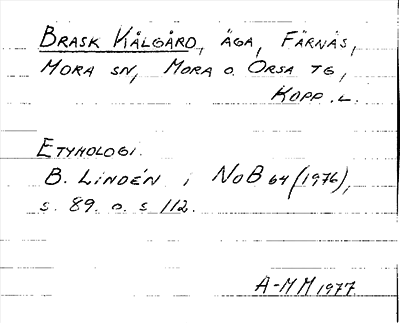 BRASK KÅLGÅRD, ÄGA, FÄRNÄS,
MORA SN, MORA O. ORSA TG,
KOPP. L.
ETYMOLOGI.
B. LINDÉN i NoB 64 (1976),
s. 89. o. s 112.
A-M M 1977